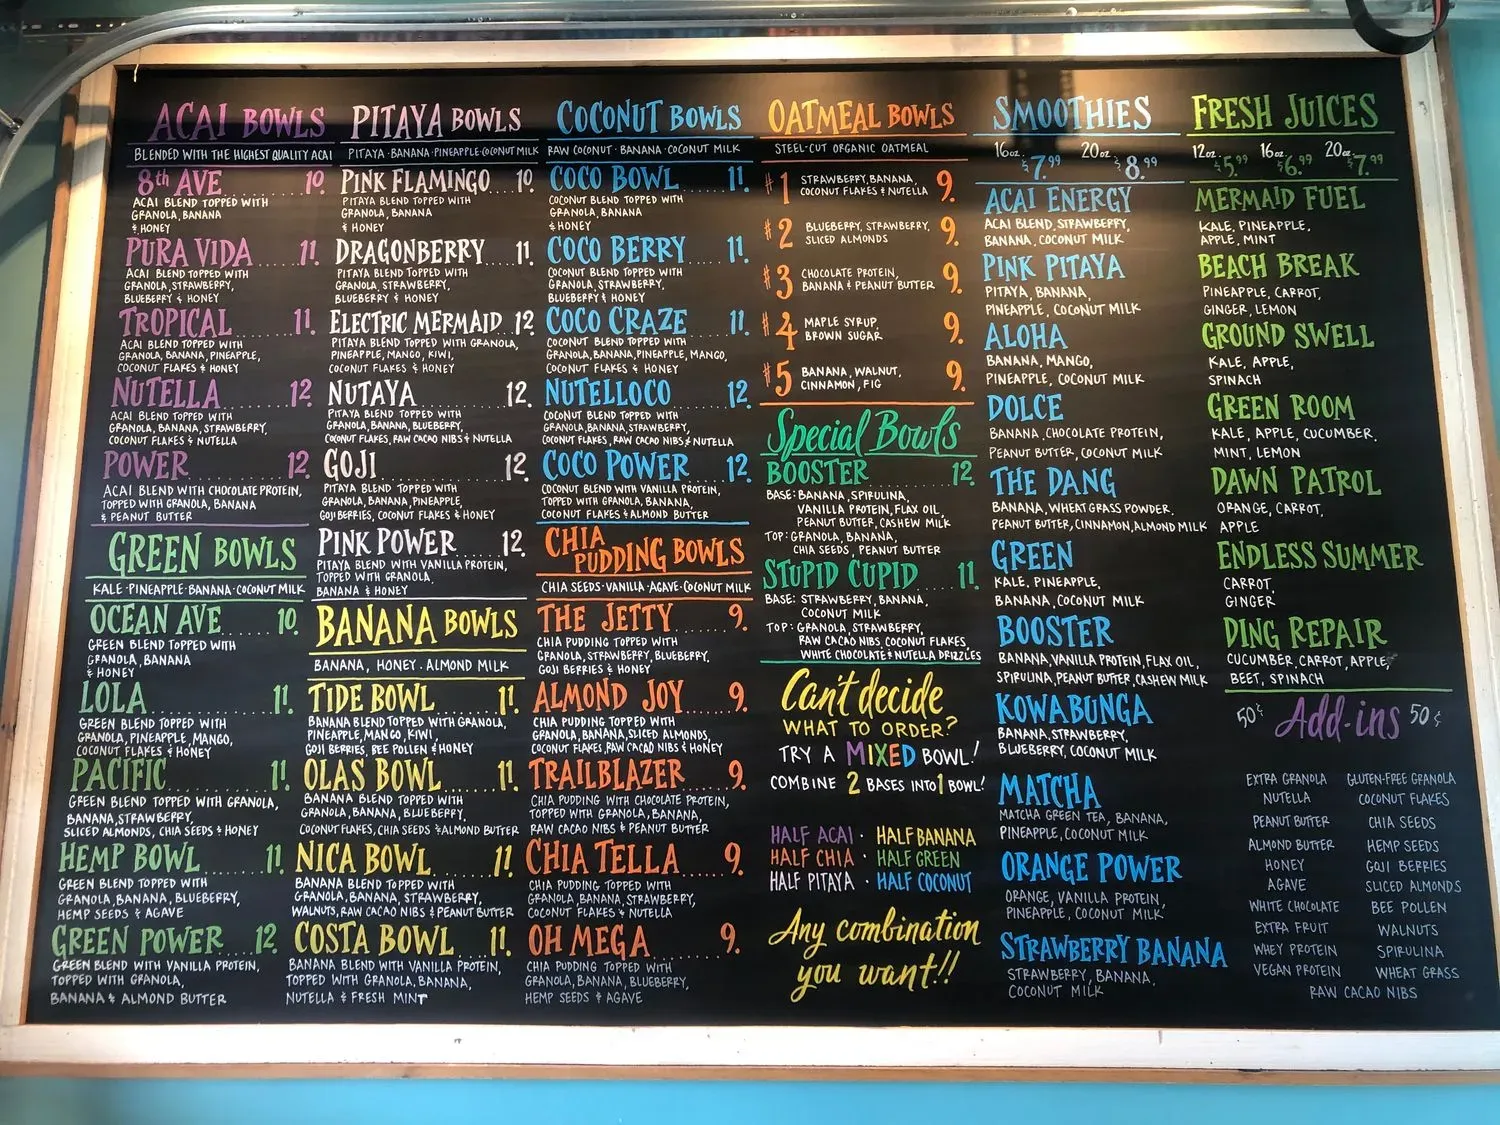 ACAI BOWLS
BLENDED WITH THE HIGHEST QUALITY ACAI
8th AVE 10.
ACAI BLEND TOPPED WITH
GRANOLA, BANANA
& HONEY
PURA VIDA 11.
ACAI BLEND TOPPED WITH
GRANOLA, STRAWBERRY,
BLUEBERRY & HONEY
TROPICAL 11.
ACAI BLEND TOPPED WITH
GRANOLA, BANANA, PINEAPPLE,
COCONUT FLAKES & HONEY
NUTELLA 12
ACAI BLEND TOPPED WITH
GRANOLA, BANANA, STRAWBERRY,
COCONUT FLAKES & NUTELLA
POWER 12.
ACAI BLEND WITH CHOCOLATE PROTEIN,
TOPPED WITH GRANOLA, BANANA
& PEANUT BUTTER
GREEN BOWLS
KALE · PINEAPPLE · BANANA · COCONUT MILK
OCEAN AVE 10.
GREEN BLEND TOPPED WITH
GRANOLA, BANANA
& HONEY
LOLA 11.
GREEN BLEND TOPPED WITH
GRANOLA, PINEAPPLE, MANGO,
COCONUT FLAKES & HONEY
PACIFIC 11.
GREEN BLEND TOPPED WITH GRANOLA,
BANANA, STRAWBERRY,
SLICED ALMONDS, CHIA SEEDS & HONEY
HEMP BOWL 11.
GREEN BLEND TOPPED WITH
GRANOLA, BANANA, BLUEBERRY,
HEMP SEEDS & AGAVE
GREEN POWER 12.
GREEN BLEND WITH VANILLA PROTEIN,
TOPPED WITH GRANOLA,
BANANA & ALMOND BUTTER
PITAYA BOWLS
PITAYA · BANANA · PINEAPPLE · COCONUT MILK
PINK FLAMINGO 10.
PITAYA BLEND TOPPED WITH
GRANOLA, BANANA
& HONEY
DRAGONBERRY 11.
PITAYA BLEND TOPPED WITH
GRANOLA, STRAWBERRY,
BLUEBERRY & HONEY
ELECTRIC MERMAID 12.
PITAYA BLEND TOPPED WITH GRANOLA,
PINEAPPLE, MANGO, KIWI,
COCONUT FLAKES & HONEY
NUTAYA 12.
PITAYA BLEND TOPPED WITH
GRANOLA, BANANA, BLUEBERRY,
COCONUT FLAKES, RAW CACAO NIBS & NUTELLA
GOJI 12.
PITAYA BLEND TOPPED WITH
GRANOLA, BANANA, PINEAPPLE,
GOJI BERRIES, COCONUT FLAKES & HONEY
PINK POWER 12.
PITAYA BLEND WITH VANILLA PROTEIN,
TOPPED WITH GRANOLA,
BANANA & HONEY
BANANA BOWLS
BANANA, HONEY · ALMOND MILK
TIDE BOWL 11.
BANANA BLEND TOPPED WITH GRANOLA,
PINEAPPLE, MANGO, KIWI,
GOJI BERRIES, BEE POLLEN & HONEY
OLAS BOWL 11.
BANANA BLEND TOPPED WITH
GRANOLA, BANANA, BLUEBERRY,
COCONUT FLAKES, CHIA SEEDS & ALMOND BUTTER
NICA BOWL 11.
BANANA BLEND TOPPED WITH
GRANOLA, BANANA, STRAWBERRY,
WALNUTS, RAW CACAO NIBS & PEANUT BUTTER
COSTA BOWL 11.
BANANA BLEND WITH VANILLA PROTEIN,
TOPPED WITH GRANOLA, BANANA,
NUTELLA & FRESH MINT
COCONUT BOWLS
RAW COCONUT · BANANA · COCONUT MILK
COCO BOWL 11.
COCONUT BLEND TOPPED WITH
GRANOLA, BANANA,
& HONEY
COCO BERRY 11.
COCONUT BLEND TOPPED WITH
GRANOLA, STRAWBERRY,
BLUEBERRY & HONEY
COCO CRAZE 11.
COCONUT BLEND TOPPED WITH
GRANOLA, BANANA, PINEAPPLE, MANGO,
COCONUT FLAKES & HONEY
NUTELLOCO 12.
COCONUT BLEND TOPPED WITH
GRANOLA, BANANA, STRAWBERRY,
COCONUT FLAKES, RAW CACAO NIBS & NUTELLA
COCO POWER 12.
COCONUT BLEND WITH VANILLA PROTEIN,
TOPPED WITH GRANOLA, BANANA,
COCONUT FLAKES & ALMOND BUTTER
CHIA
PUDDING BOWLS
CHIA SEEDS · VANILLA · AGAVE · COCONUT MILK
THE JETTY 9.
CHIA PUDDING TOPPED WITH
GRANOLA, STRAWBERRY, BLUEBERRY,
GOJI BERRIES & HONEY
ALMOND JOY 9.
CHIA PUDDING TOPPED WITH
GRANOLA, BANANA, SLICED ALMONDS,
COCONUT FLAKES, RAW CACAO NIBS & HONEY
TRAILBLAZER 9.
CHIA PUDDING WITH CHOCOLATE PROTEIN,
TOPPED WITH GRANOLA, BANANA,
RAW CACAO NIBS & PEANUT BUTTER
CHIA TELLA 9.
CHIA PUDDING TOPPED WITH
GRANOLA, BANANA, STRAWBERRY,
COCONUT FLAKES & NUTELLA
OH MEGA 9.
CHIA PUDDING TOPPED WITH
GRANOLA, BANANA, BLUEBERRY,
HEMP SEEDS & AGAVE
OATMEAL BOWLS
STEEL-CUT ORGANIC OATMEAL
#1 STRAWBERRY, BANANA, 9.
COCONUT FLAKES & NUTELLA
#2 BLUEBERRY, STRAWBERRY, 9.
SLICED ALMONDS
#3 CHOCOLATE PROTEIN, 9.
BANANA & PEANUT BUTTER
#4 MAPLE SYRUP, 9.
BROWN SUGAR
#5 BANANA, WALNUT, 9.
CINNAMON, FIG
Special Bowls
BOOSTER 12.
BASE: BANANA, SPIRULINA,
VANILLA PROTEIN, FLAX OIL,
PEANUT BUTTER, CASHEW MILK
TOP: GRANOLA, BANANA,
CHIA SEEDS, PEANUT BUTTER
STUPID CUPID 11.
BASE: STRAWBERRY, BANANA,
COCONUT MILK
TOP: GRANOLA, STRAWBERRY,
RAW CACAO NIBS, COCONUT FLAKES,
WHITE CHOCOLATE & NUTELLA DRIZZLES
Can't decide
WHAT TO ORDER?
TRY A MIXED BOWL!
COMBINE 2 BASES INTO 1 BOWL!
HALF ACAI · HALF BANANA
HALF CHIA · HALF GREEN
HALF PITAYA · HALF COCONUT
Any combination
you want!!
SMOOTHIES
16oz. $7.99 20oz. $8.99
ACAI ENERGY
ACAI BLEND, STRAWBERRY,
BANANA, COCONUT MILK
PINK PITAYA
PITAYA, BANANA,
PINEAPPLE, COCONUT MILK
ALOHA
BANANA, MANGO,
PINEAPPLE, COCONUT MILK
DOLCE
BANANA, CHOCOLATE PROTEIN,
PEANUT BUTTER, COCONUT MILK
THE DANG
BANANA, WHEAT GRASS POWDER,
PEANUT BUTTER, CINNAMON, ALMOND MILK
GREEN
KALE, PINEAPPLE,
BANANA, COCONUT MILK
BOOSTER
BANANA, VANILLA PROTEIN, FLAX OIL,
SPIRULINA, PEANUT BUTTER, CASHEW MILK
KOWABUNGA
BANANA, STRAWBERRY,
BLUEBERRY, COCONUT MILK
MATCHA
MATCHA GREEN TEA, BANANA,
PINEAPPLE, COCONUT MILK
ORANGE POWER
ORANGE, VANILLA PROTEIN,
PINEAPPLE, COCONUT MILK
STRAWBERRY BANANA
STRAWBERRY, BANANA,
COCONUT MILK
FRESH JUICES
12oz. $5.99 16oz. $6.99 20oz. $7.99
MERMAID FUEL
KALE, PINEAPPLE,
APPLE, MINT
BEACH BREAK
PINEAPPLE, CARROT,
GINGER, LEMON
GROUND SWELL
KALE, APPLE,
SPINACH
GREEN ROOM
KALE, APPLE, CUCUMBER,
MINT, LEMON
DAWN PATROL
ORANGE, CARROT,
APPLE
ENDLESS SUMMER
CARROT,
GINGER
DING REPAIR
CUCUMBER, CARROT, APPLE,
BEET, SPINACH
50¢ Add-ins 50¢
EXTRA GRANOLA GLUTEN-FREE GRANOLA
NUTELLA COCONUT FLAKES
PEANUT BUTTER CHIA SEEDS
ALMOND BUTTER HEMP SEEDS
HONEY GOJI BERRIES
AGAVE SLICED ALMONDS
WHITE CHOCOLATE BEE POLLEN
EXTRA FRUIT WALNUTS
WHEY PROTEIN SPIRULINA
VEGAN PROTEIN WHEAT GRASS
RAW CACAO NIBS